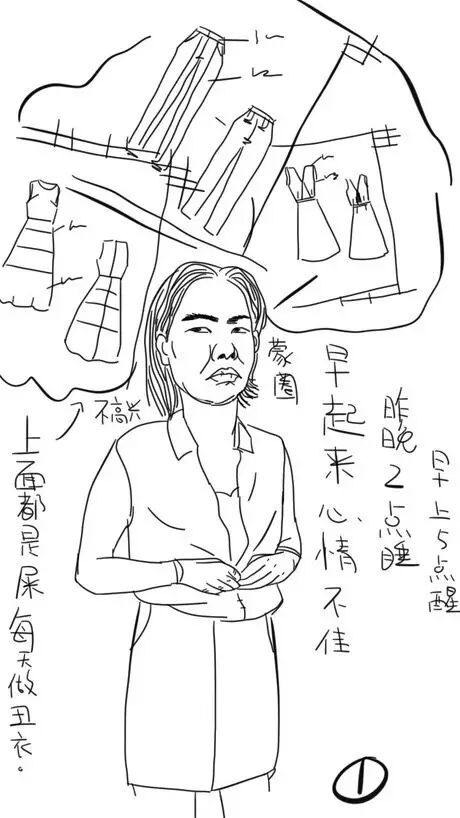 早上5点醒
昨晚2点睡
早起来心情不佳
蒙圈
不高兴
上面都是屎每天做丑衣。
1